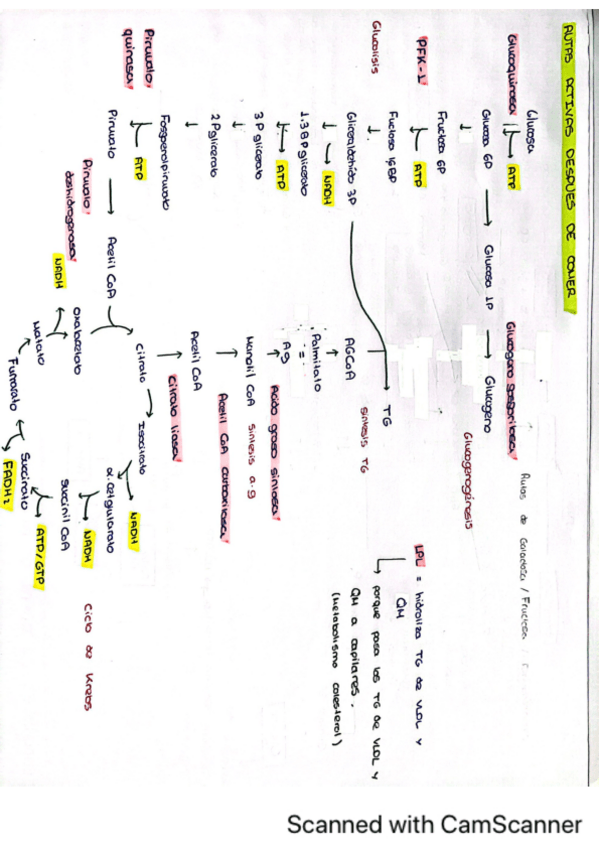 RUTAS ACTIVAS DESPUES DE COMER
Rutas de Galactosa / Fructosa /
Glucosa
Glucoquinasa
ATP
Glucosa 6P
Glucosa 1P
Glucogeno
Glucogeno
Glucogenogénesis
Fructosa 6P
PFK-1
ATP
Fuctosa 1,6BP
Glucolisis
Gliceraldehido 3P
NADH
1.3 BP glicerato
ATP
3P glicerato
2 Pglicerato
Fosfoenolpiruvato
Piruvato
quinasa
ATP
Piruvato
Piruvato
deshidrogenasa
Acetil CoA
TG
Sintesis TG
AGCoA
Palmitato
Ag
Acido graso sintasa
Manonil CoA
Sintesis a.g
Acetil CoA carboxilasa
Acetil CoA
Citrato liasa
Citrato
Isocitrato
NADH
α. cetglutarato
NADH
Succinil CoA
ATP/GTP
Succinato
FADH2
Fumarato
Malato
NADH
Oxalacetato
Ciclo de Krebs
LPL = hidroliza TG de VLDL y
QM
porque pasa los TG de VLDL y
QM a capilares.
(Metabolismo colesterol)
Scanned with CamScanner